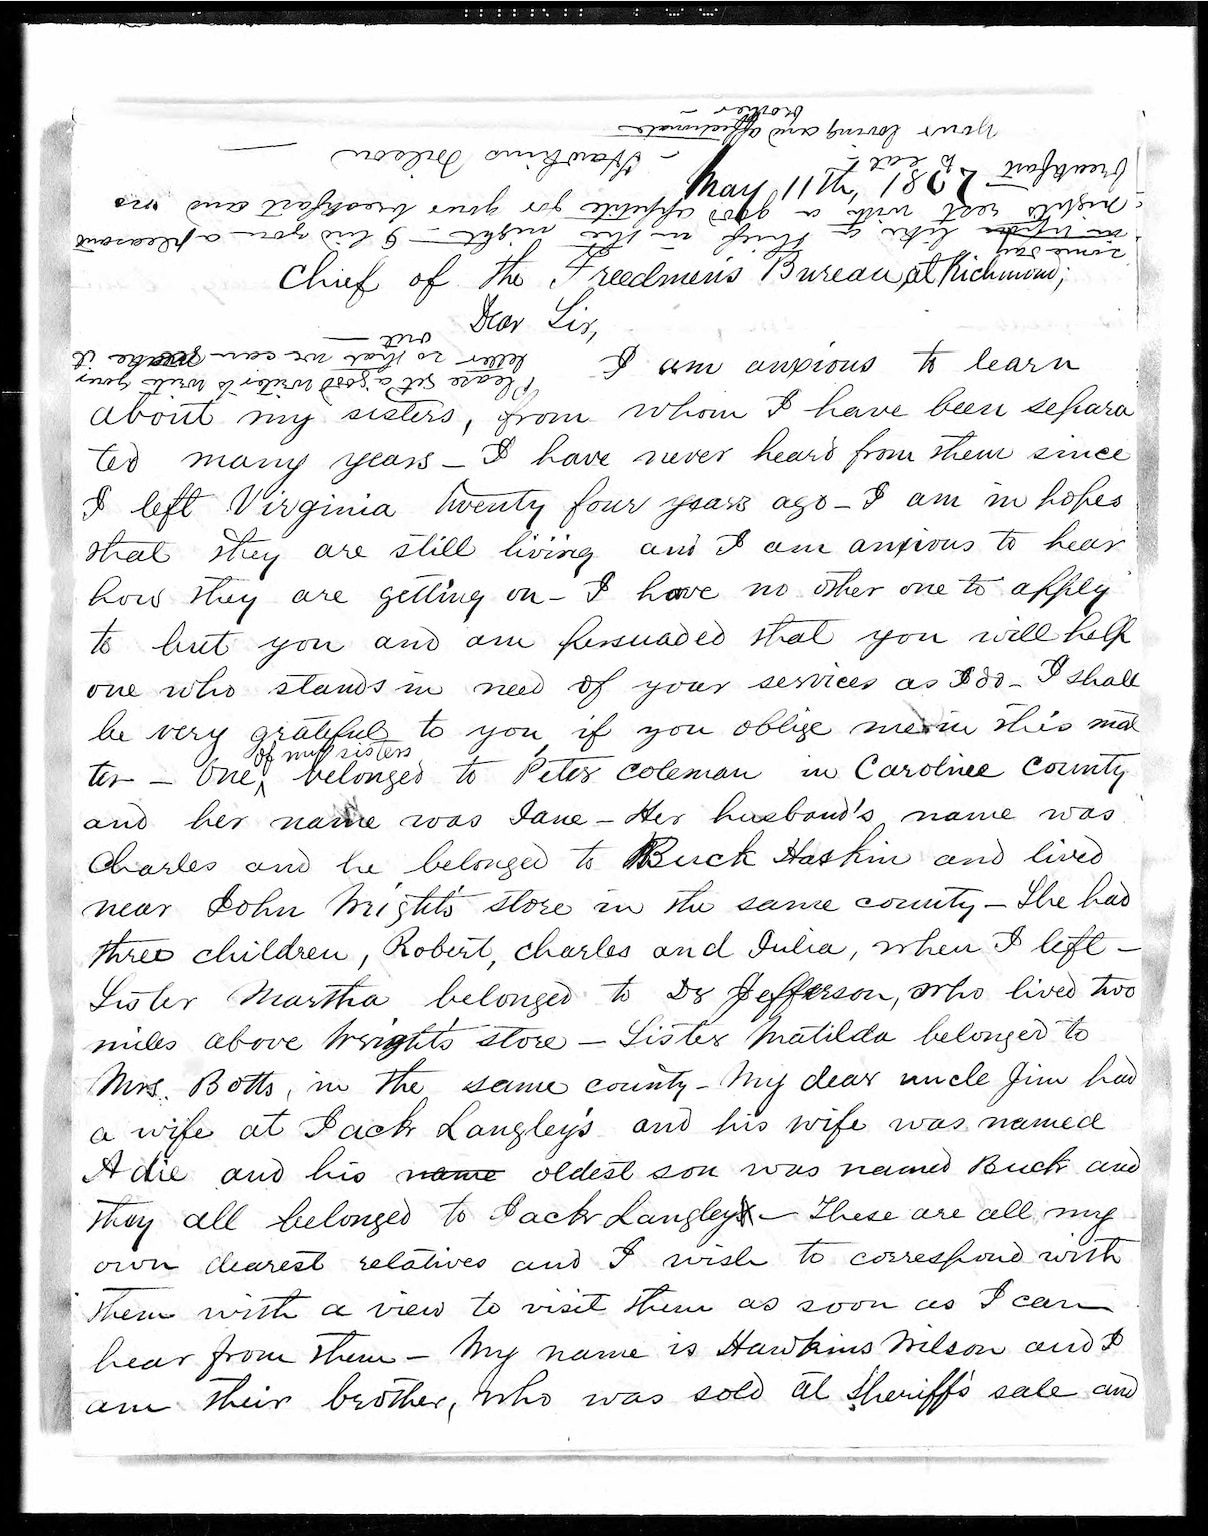 May 11th, 1867
Chief of the Freedmen's Bureau, at Richmond;
Dear Sir,
I am anxious to learn
about my sisters, from whom I have been separa
ted many years – I have never heard from them since
I left Virginia twenty four years ago – I am in hopes
that they are still living and I am anxious to hear
how they are getting on – I have no other one to apply
to but you and am persuaded that you will help
one who stands in need of your services as I do – I shall
be very grateful to you, if you oblige me in this mat
of my sisters
ter – One, belonged to Peter Coleman in Caroline County
and her name was Jane – Her husband's name was
Charles and he belonged to Buck Haskin and lived
near John Wright's store in the same county – She had
three children, Robert, Charles and Julia, when I left –
Sister Martha belonged to Dr Jefferson, who lived two
miles above Wright's store – Sister Matilda belonged to
Mrs. Botts, in the same county – My dear uncle Jim had
a wife at Jack Langley's and his wife was named
Adie and his name oldest son was named Buck and
they all belonged to Jack Langley – These are all my
own dearest relatives and I wish to correspond with
them with a view to visit them as soon as I can
hear from them – My name is Hawkins Wilson and I
am their brother, who was sold at Sheriff's sale and
Please get a good writer to write your
letter so that we can make it
out –
some day
in like a thief in the night – I bid you a pleasant
night's rest with a good appetite for your breakfast and no
breakfast to eat –
Your loving and affectionate
brother –
– Hawkins Wilson –